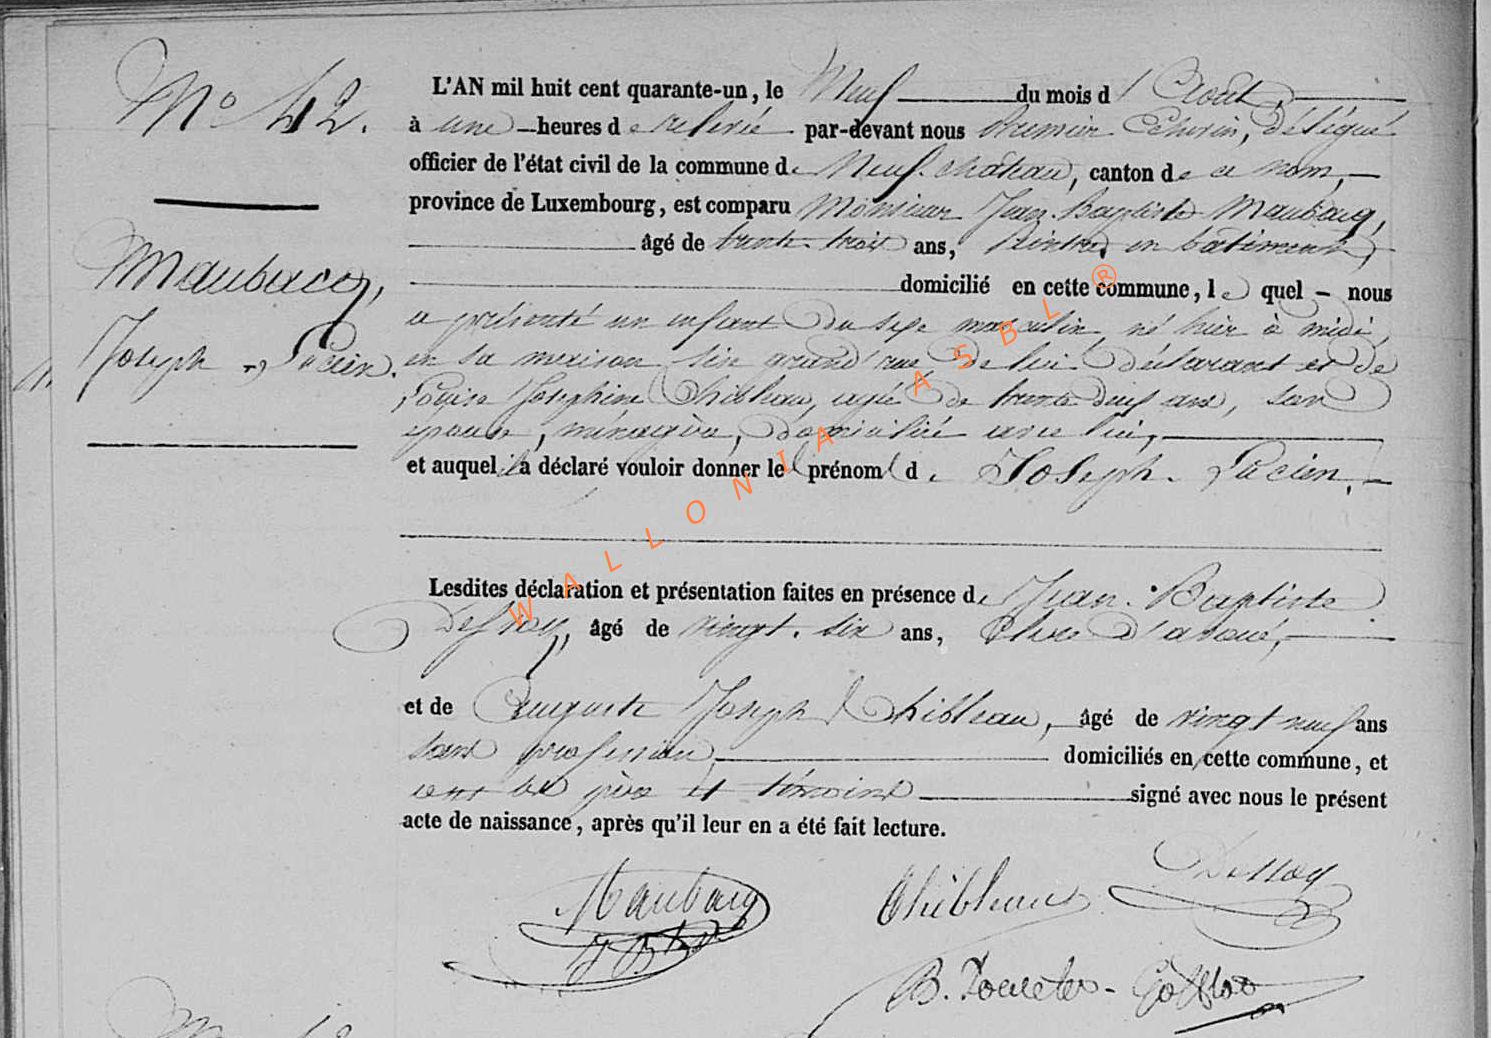 No 42.
Maubacq,
Joseph-Lucien.
L'AN mil huit cent quarante-un, le Neuf du mois d'Août,
à une heures de relevée par-devant nous Premier Echevin, délégué
officier de l'état civil de la commune de Neufchâteau, canton de ce nom,
province de Luxembourg, est comparu Monsieur Jean-Baptiste Maubacq,
âgé de trente-trois ans, Peintre en bâtiments,
domicilié en cette commune, lequel nous
a présenté un enfant du sexe masculin, né hier à midi,
en sa maison sise grand'rue de lui déclarant et de
Louise Josephine Thibleau, agée de trente deux ans, son
épouse, ménagère, domiciliée avec lui,
et auquel il a déclaré vouloir donner le prénom de Joseph-Lucien.
Lesdites déclaration et présentation faites en présence de Jean-Baptiste
Dessoy, âgé de vingt-six ans, Clerc d'avoué,
et de Auguste Joseph Thibleau, âgé de vingt neuf ans
sans profession, domiciliés en cette commune, et
ont les père et témoins signé avec nous le présent
acte de naissance, après qu'il leur en a été fait lecture.
Maubacq
JBte
Thibleau
Dessoy
B. Poncelet-
WALLONIA ASBL ®